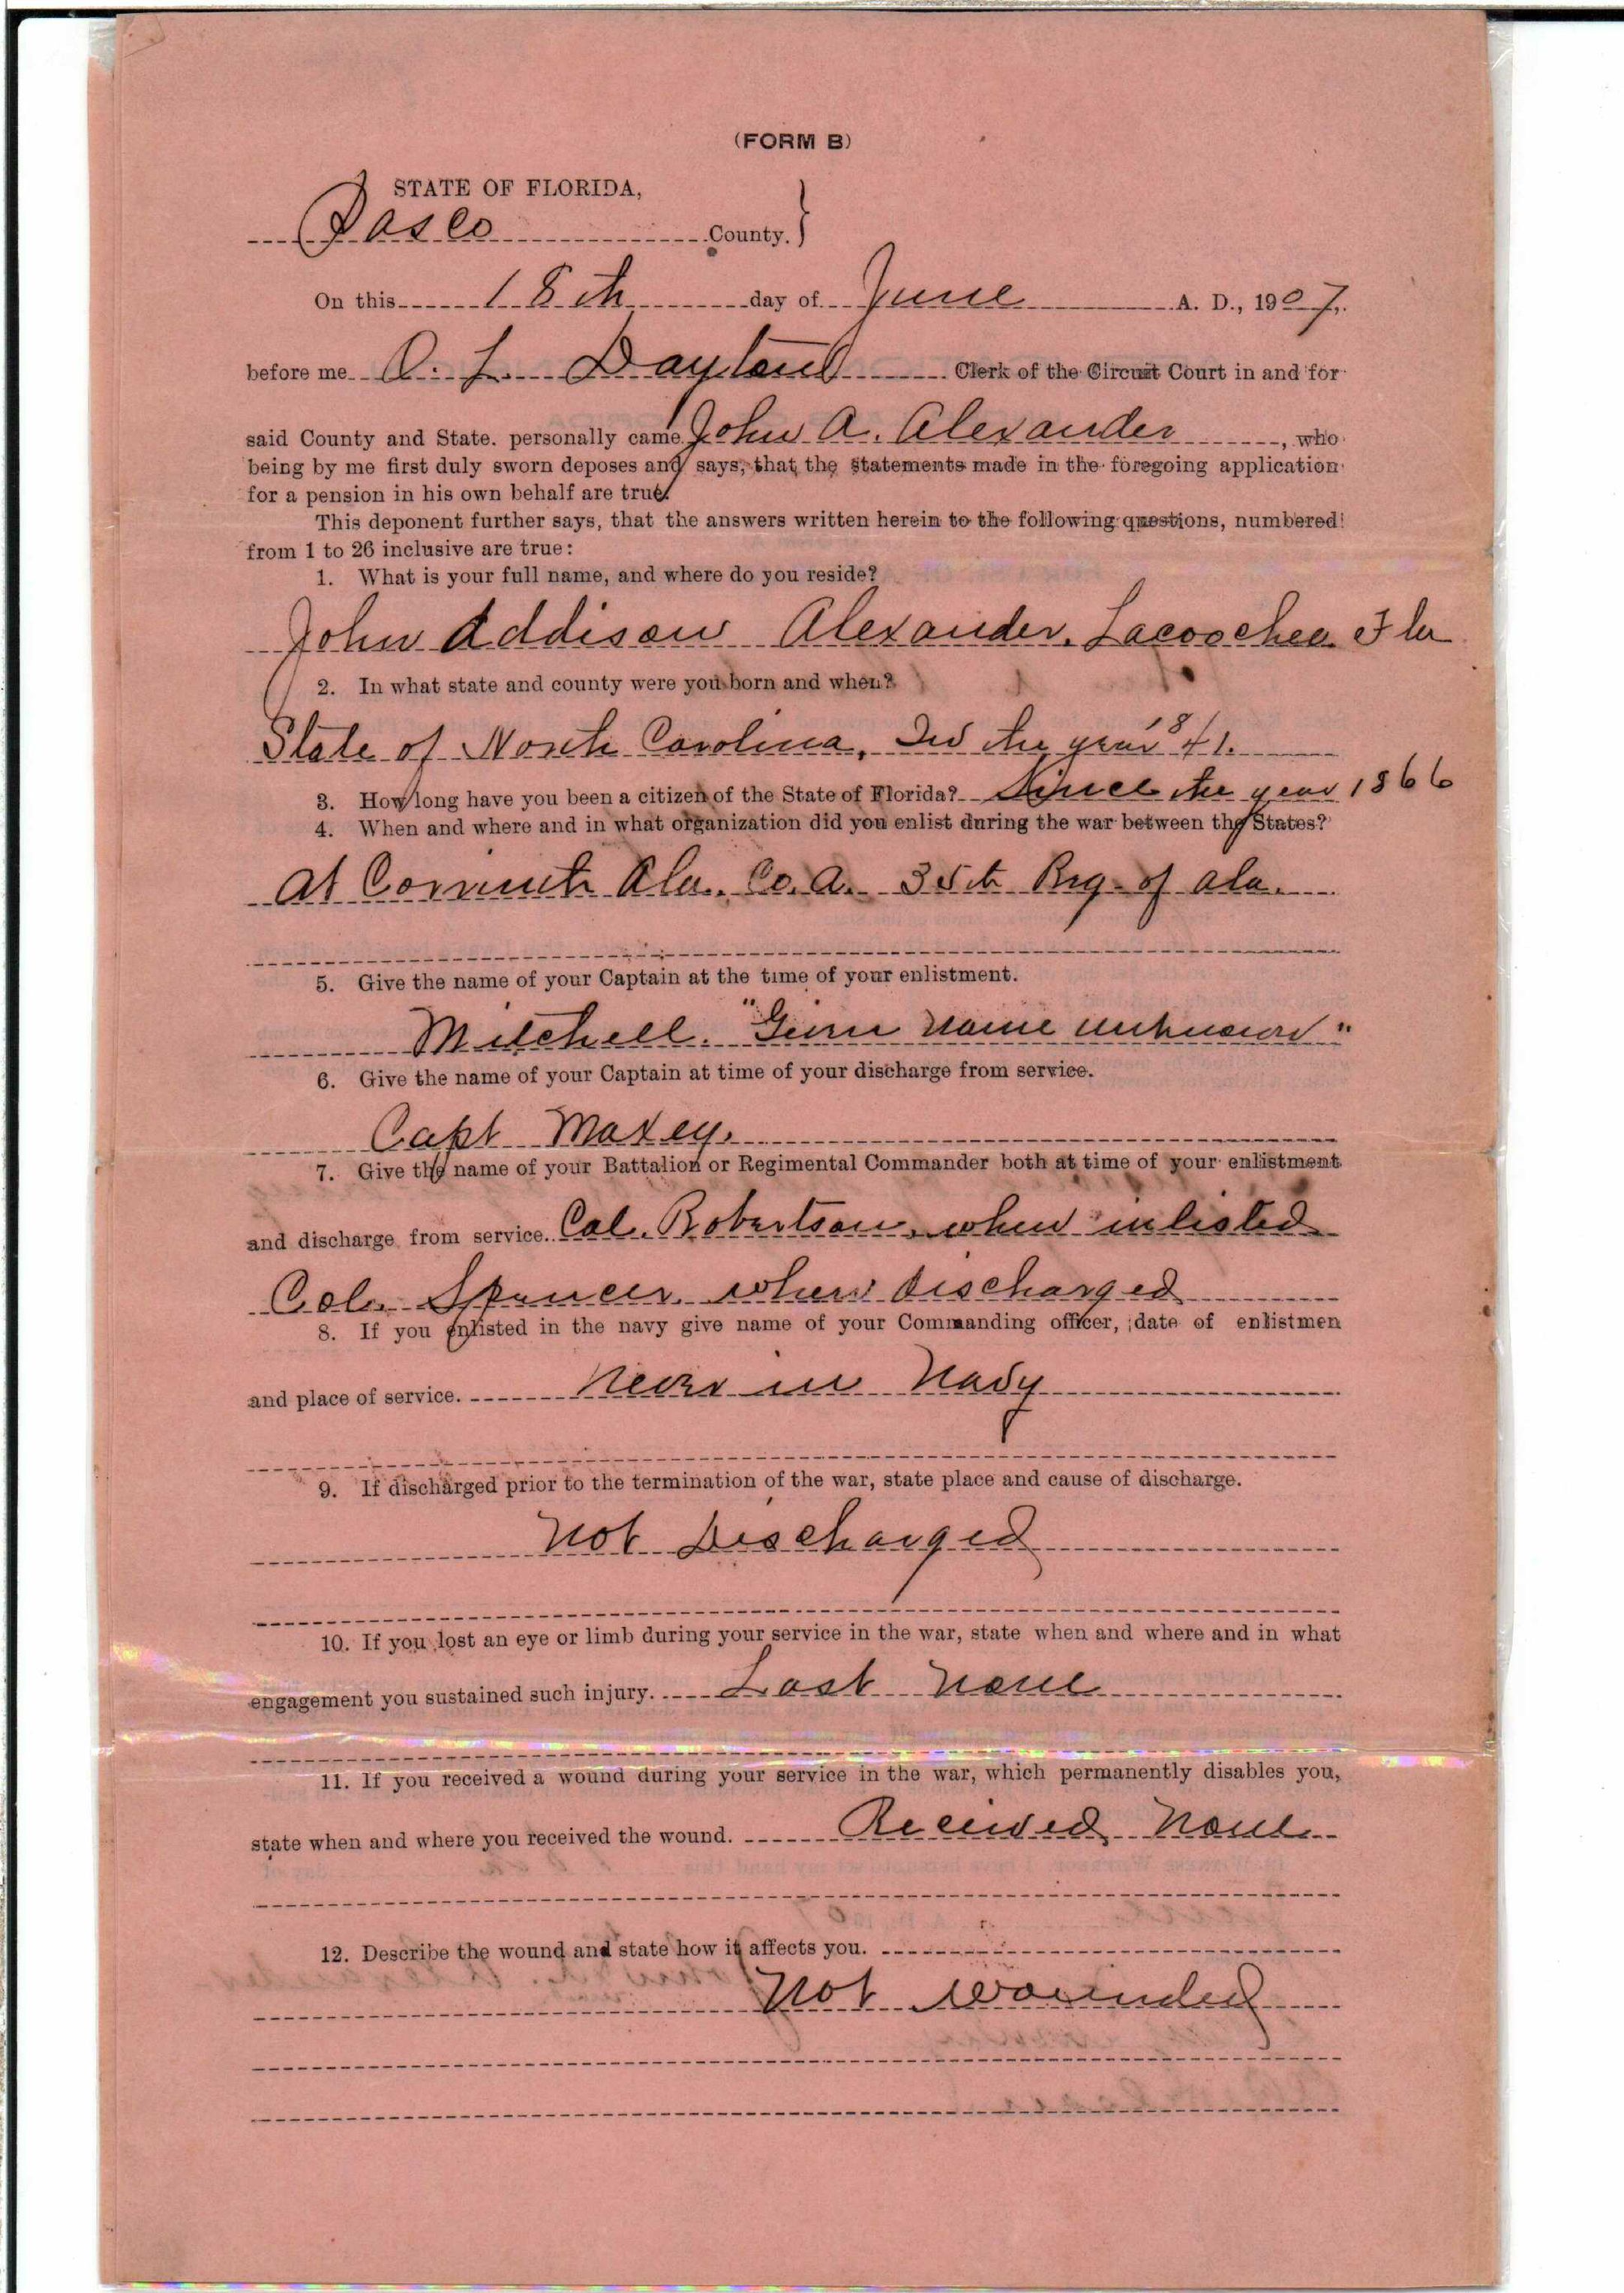 (FORM B)
STATE OF FLORIDA,
Pasco County. }
On this 18th day of June A. D., 1907,
before me O. L. Dayton Clerk of the Circuit Court in and for
said County and State. personally came John A. Alexander, who
being by me first duly sworn deposes and says, that the statements made in the foregoing application
for a pension in his own behalf are true.
This deponent further says, that the answers written herein to the following questions, numbered
from 1 to 26 inclusive are true:
1. What is your full name, and where do you reside?
John Addison Alexander, Lacoochee Fla
2. In what state and county were you born and when?
State of North Carolina, In the year 1841.
3. How long have you been a citizen of the State of Florida? Since the year 1866
4. When and where and in what organization did you enlist during the war between the States?
At Corinth Ala. Co. A. 35th Reg. of Ala.
5. Give the name of your Captain at the time of your enlistment.
Mitchell. "Given name unknown"
6. Give the name of your Captain at time of your discharge from service.
Capt Maxey.
7. Give the name of your Battalion or Regimental Commander both at time of your enlistment
and discharge from service. Col. Robertson, when inlisted
Col. Spencer when discharged
8. If you enlisted in the navy give name of your Commanding officer, date of enlistmen
and place of service. Never in Navy
9. If discharged prior to the termination of the war, state place and cause of discharge.
Not Discharged
10. If you lost an eye or limb during your service in the war, state when and where and in what
engagement you sustained such injury. Lost None
11. If you received a wound during your service in the war, which permanently disables you,
state when and where you received the wound. Received None
12. Describe the wound and state how it affects you.
Not wounded